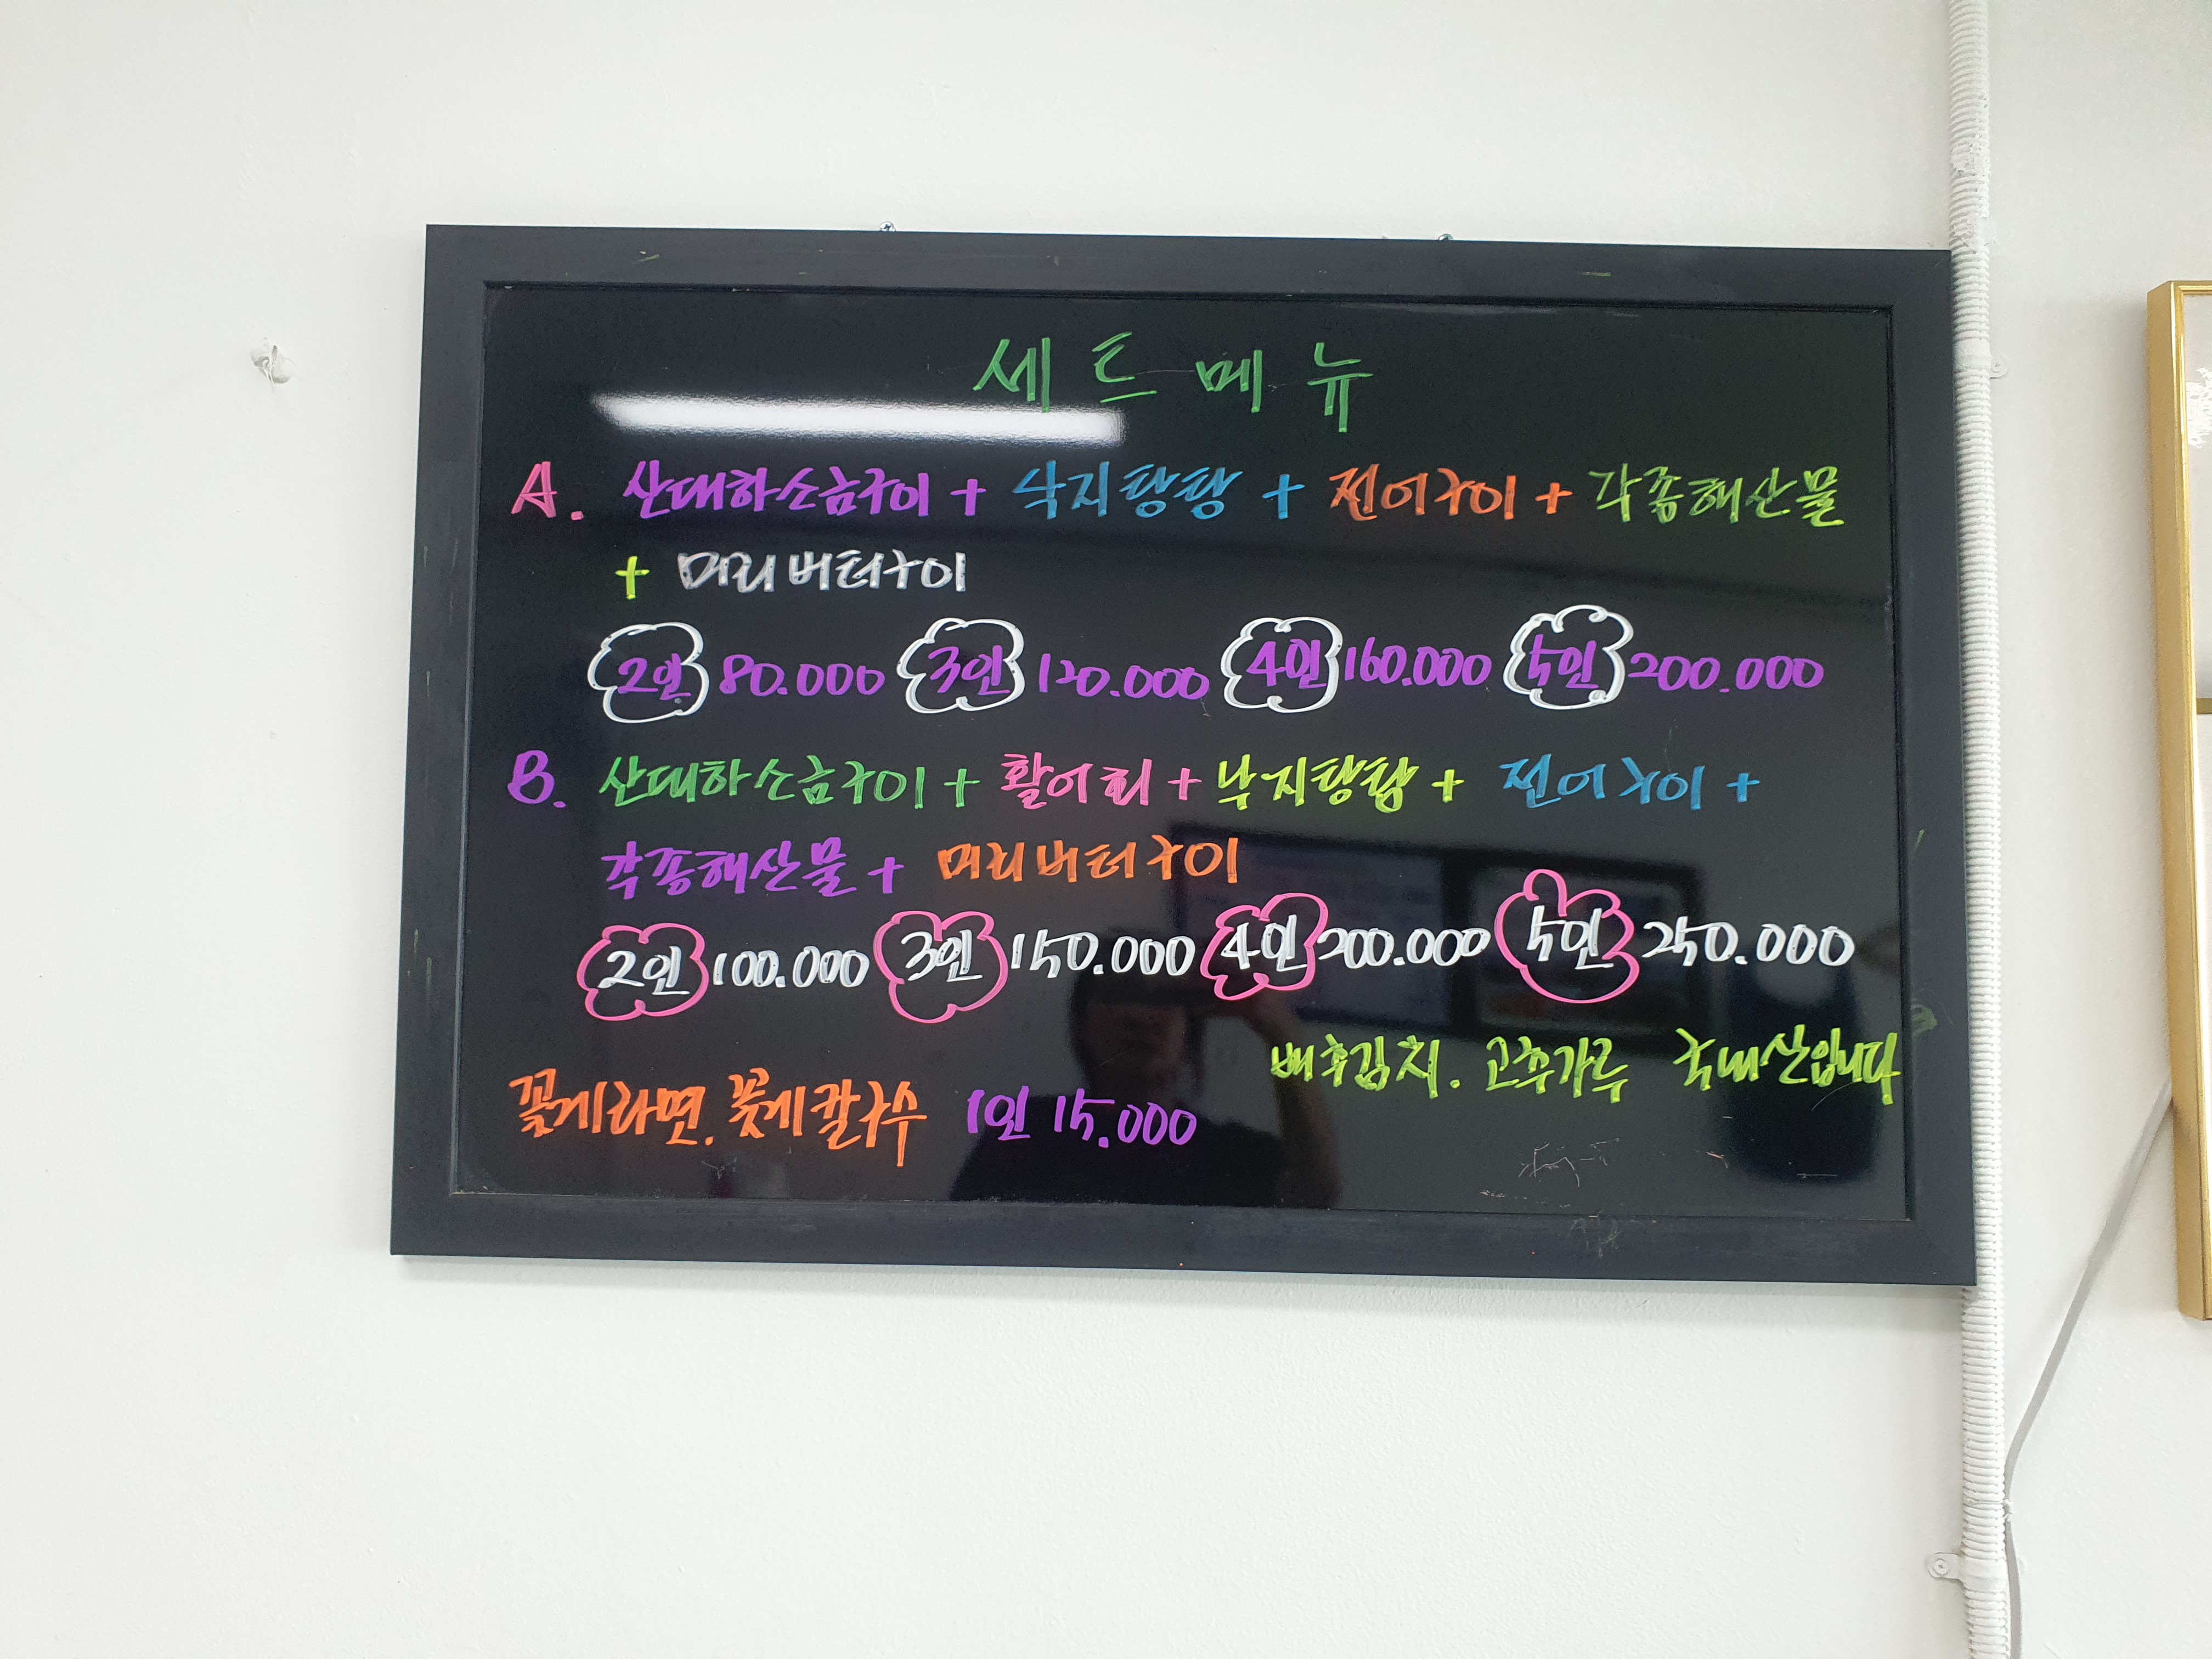 세트메뉴
A. 산대하소금구이 + 낙지탕탕 + 전어구이 + 각종해산물
+ 머리버터구이
2인 80.000 3인 120.000 4인 160.000 5인 200.000
B. 산대하소금구이 + 활어회 + 낙지탕탕 + 전어구이 +
각종해산물 + 머리버터구이
2인 100.000 3인 150.000 4인 200.000 5인 250.000
배추김치. 고추가루 국내산입니다
꽃게라면. 꽃게칼국수 1인 15.000